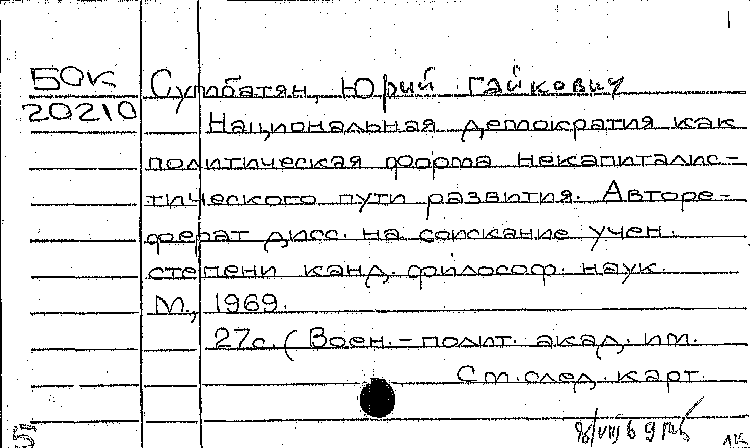 БОК
20210
Сумбатян, Юрий Гайкович
Национальная демократия как
политическая форма некапиталис-
тического пути развития. Авторе-
ферат дисс. на соискание учен.
степени канд. философ. наук.
М., 1969.
27с. (Воен.-полит. акад. им.
См. след. карт.
5